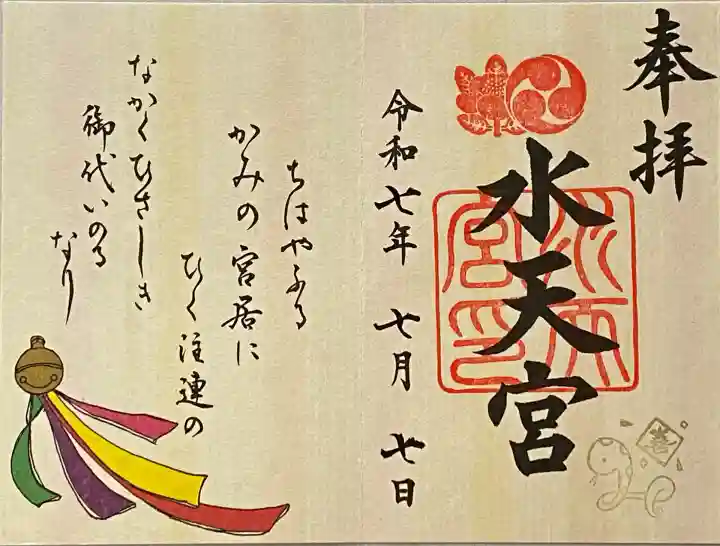 奉拝
水天宮
水天宮印
令和七年 七月 七日
ちはやふる
かみの宮居に
ひく注連の
なかくひさしき
御代いのる
なり